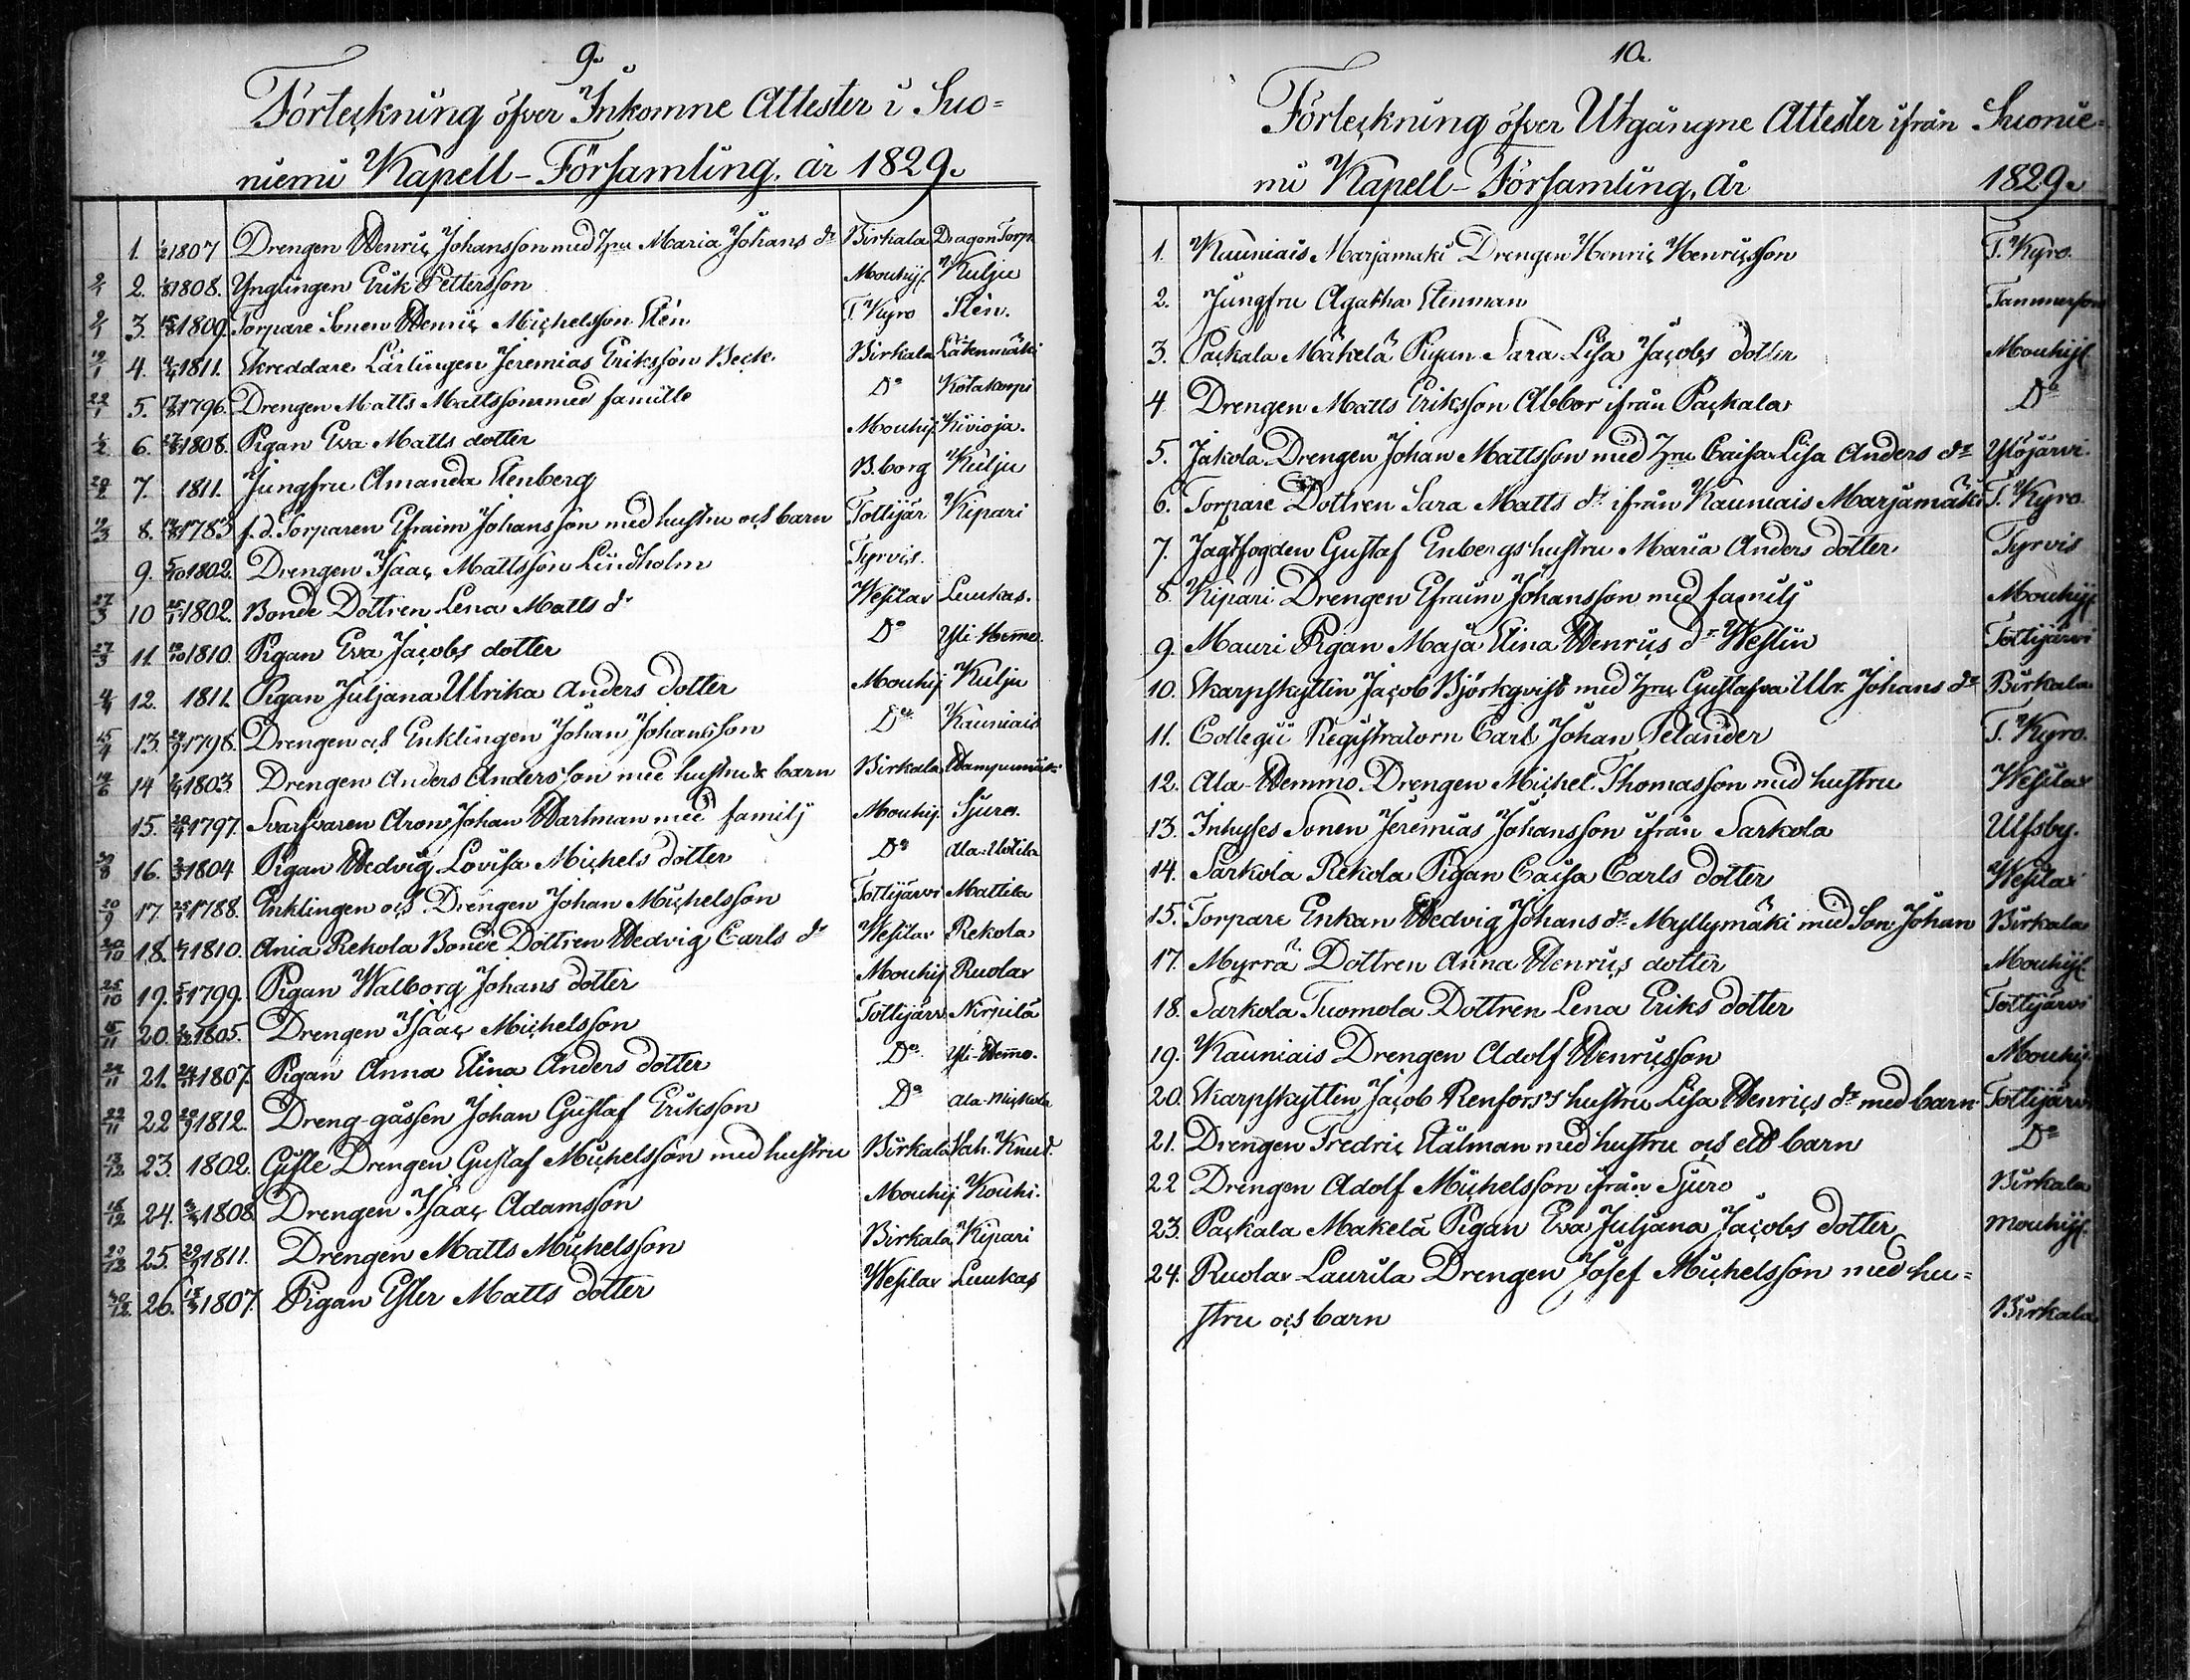 9.
Förteckning öfver Inkomne Attester i Suo=
niemi Kapell-Församling, år 1829.
1. 1807 Drengen Henric Johansson med Hru Maria Johans dr Birkala Dragon Torp
2/1 2. 1808. Ynglingen Erik Pettersson Mouhij. Kulju
9/1 3. 1809. Torpare Sonen Henric Michelsson Stén T. Kyro Stén.
19/1 4. 1811. Skreddare Lärlingen Jeremias Eriksson Beck. Birkala Lätenmäki
22/1 5. 17/8 1796. Drengen Matts Mattsson med famille Do Kotakorpi
1/2 6. 1808. Pigan Eva Matts dotter Mouhij. Kivioja.
20/2 7. 1811. Jungfru Amanda Stenberg B.borg Kulju
12/3 8. 1783 f.d. Torparen Efraim Johansson med hustru och barn Tottijär Kipari
9. 5/10 1802. Drengen Isaac Mattsson Lindholm Tyrvis.
27/3 10 1802. Bonde Dottren Lena Matts dr Wesilax Luukas.
27/3 11. 1810. Pigan Eva Jacobs dotter Do Yli-Hemo.
4/4 12. 1811. Pigan Juljana Ulrika Anders dotter Mouhij Kulju
15/4 13. 1798. Drengen och Enklingen Johan Johansson Do Kauniais
14/6 14 1803 Drengen Anders Andersson med hustru & barn Birkala
15. 1797. Svarfvaren Aron Johan Hartman med familj Mouhij. Sjuro.
30/8 16. 1804 Pigan Hedvig Lovisa Michels dotter Do
20/9 17. 1788. Enklingen och Drengen Johan Michelsson Tottijärvi Mattila
20/10 18. 1810. Ania Rekola Bonde Dottren Hedvig Carls dr Wesilax Rekola
25/10 19. 1799. Pigan Walborg Johans dotter Mouhij. Ruolax
15/11 20. 1805. Drengen Isaac Michelsson Tottijärv. Nirpilä
22/11 21. 24/11 1807. Pigan Anna Stina Anders dotter Do Yli-Hemo.
22/11 22 1812. Dreng-gåssen Johan Gustaf Eriksson Do Ala-Mickola
13/12 23. 1802. Gifte Drengen Gustaf Michelsson med hustru Birkala Vah. Knud.
18/12 24. 1808. Drengen Isaac Adamsson Mouhij. Kouhi.
20/12 25. 1811. Drengen Matts Michelsson Birkala Kipari
30/12. 26. 1807. Pigan Ester Matts dotter Wesilax Luukas
10.
Förteckning öfver Utgångne Attester ifrån Suonie=
mi Kapell-Församling, år 1829.
1. Kauniais Marjamäki Drengen Henric Henricsson T. Kyro.
2. Jungfru Agatha Stenman Tammerfors
3. Packala Mäkelä Pigan Sara Lisa Jacobs dotter Mouhij.
4 Drengen Matts Eriksson Abbor ifrån Packala Do
5. Jakola Drengen Johan Mattsson med Hru Caisa Lisa Anders dr Ylöjärvi.
6. Torpare Dottren Sara Matts dr ifrån Kauniais Marjamäki T. Kyro
7. Jagtfogden Gustaf Enbergs hustru Maria Anders dotter Tyrvis
8. Kipari Drengen Efraim Johansson med familj Mouhij
9. Mauri Pigan Maja Stina Henrics dr Westlin Tottijärvi
10. Skarpskytten Jacob Björkqvist med Hru Gustafva Ulr. Johans dr Birkala
11. Collegii Registratorn Carl Johan Pelander T. Kyro.
12. Ala-Hemmo Drengen Michel Thomasson med hustru Wesilax
13. Inhyses Sonen Jeremias Johansson ifrån Sarkola Ulfsby.
14. Sarkola Rekola Pigan Caisa Carls dotter Wesilax
15. Torpare Enkan Hedvig Johans dr Myllymäki med Son Johan Birkala
17. Myrrä Dottren Anna Henrics dotter Mouhij.
18. Sarkola Tuomola Dottren Lena Eriks dotter Tottijärvi
19. Kauniais Drengen Adolf Henricsson Mouhij.
20. Skarpskytten Jacob Renfors's hustru Lisa Henrics dr med barn Tottijärvi
21. Drengen Fredric Stålman med hustru och ett barn Do
22 Drengen Adolf Michelsson ifrån Sjuro Birkala
23. Packala Mäkelä Pigan Eva Juljana Jacobs dotter Mouhij.
24. Ruolax Laurila Drengen Josef Michelsson med hu=
stru och barn Birkala